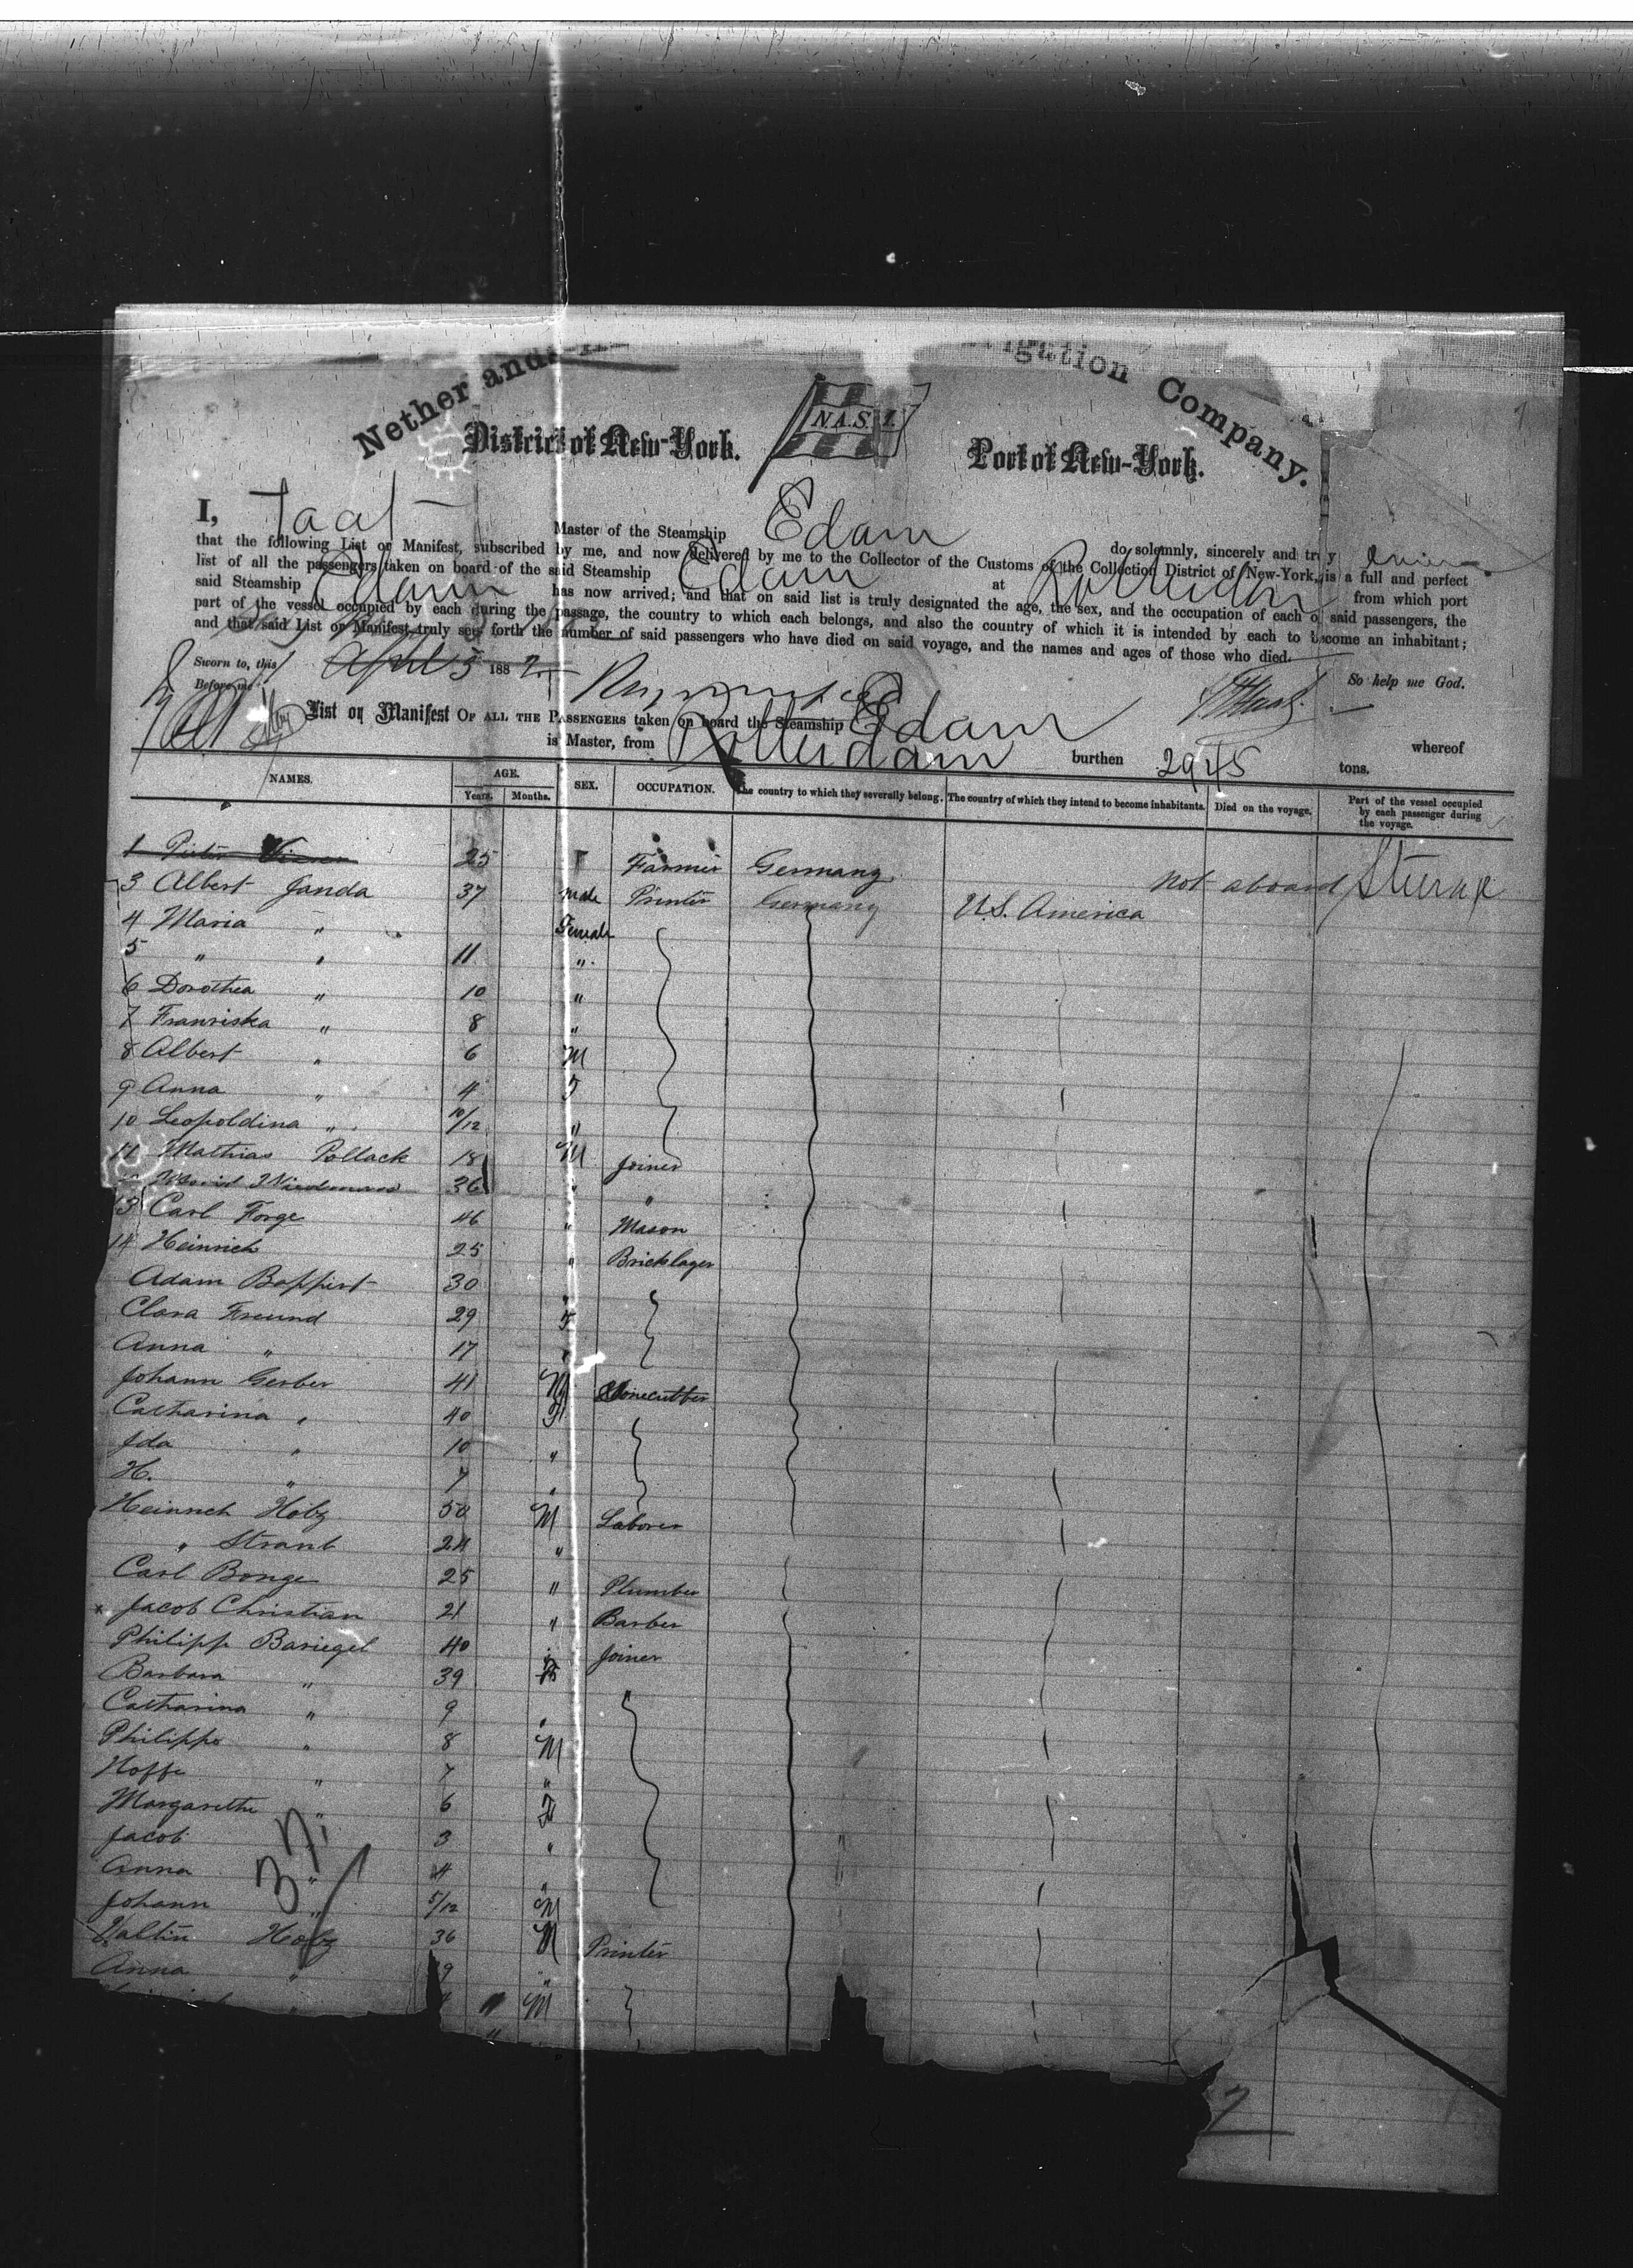 Nether ands
igation Company.
N.A.S.
District of New-York.
Port of New-York.
I, Taat Master of the Steamship Edam do solemnly, sincerely and truly
that the following List or Manifest, subscribed by me, and now delivered by me to the Collector of the Customs of the Collection District of New-York, is a full and perfect
list of all the passengers taken on board of the said Steamship Edam at Rotterdam from which port
said Steamship Edam has now arrived; and that on said list is truly designated the age, the sex, and the occupation of each of said passengers, the
part of the vessel occupied by each during the passage, the country to which each belongs, and also the country of which it is intended by each to become an inhabitant;
and that said List or Manifest truly sets forth the number of said passengers who have died on said voyage, and the names and ages of those who died.
So help me God.
Sworn to, this April 5 1882
Before me
List or Manifest OF ALL THE PASSENGERS taken on board the Steamship Edam whereof
is Master, from Rotterdam burthen 2945 tons.
NAMES. AGE. Years. Months. SEX. OCCUPATION. The country to which they severally belong. The country of which they intend to become inhabitants. Died on the voyage. Part of the vessel occupied by each passenger during the voyage.
1 25 Farmer Germany not aboard
3 Albert Janda 37 male Printer Germany U.S. America
4 Maria " Female
5 " " 11 "
6 Dorothea " 10 "
7 Franziska " 8 "
8 Albert " 6 M
9 Anna " 4 F
10 Leopoldina " 10/12 "
11 Mathias Pollack 18 M Joiner
36 " "
13 Carl Forge 46 " Mason
14 Heinrich 25 " Bricklager
Adam Boppert 30 "
Clara Freund 29 F
Anna " 17 "
Johann Gerber 41 M Stonecutter
Catharina " 40 F
Ida " 10 "
H. " 7 "
Heinrich Hobz 50 M Laborer
" Straub 24 "
Carl Bonge 25 " Plumber
x Jacob Christian 21 " Barber
Philipp Bariegel 40 " Joiner
Barbara " 39 F
Catharina " 9 "
Philippe " 8 M
Hoffe " 7 "
Margarethe " 6 F
Jacob 3 "
Anna " 4 "
Johann " 5/12 M
Valtin Hobz 36 M Printer
Anna " 9 "
" M